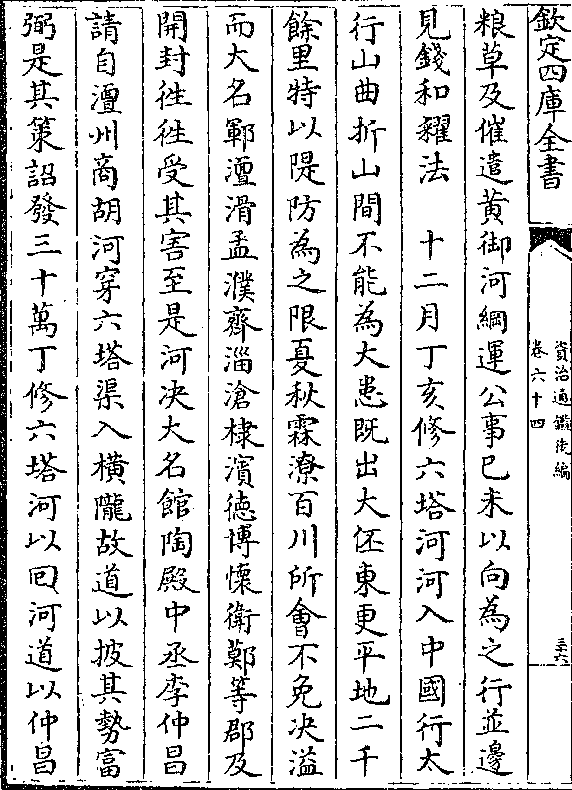 欽定四庫全書
資治通鑑後編
卷六十四
三六
粮草及催遣黄御河綱運公事已未以向為之行並邊
見錢和糴法　十二月丁亥修六塔河河入中國行太
行山曲折山間不能為大患既出大伾東更平地二千
餘里特以隄防為之限夏秋霖潦百川所會不免决溢
而大名鄆澶滑孟濮齊淄滄棣濱德博懷衛鄭等郡及
開封徃徃受其害至是河决大名館陶殿中丞李仲昌
請自澶州商胡河穿六塔渠入橫隴故道以披其勢富
弼是其策詔發三十萬丁修六塔河以囘河道以仲昌